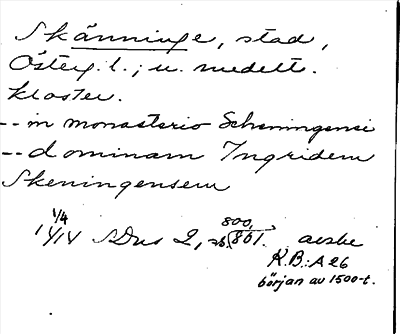 Skänninge, stad,
Österg. l.; u. medelt.
kloster.
-- in monasterio Scheningensi
-- dominam Ingridem
Skeningensem
1/4
1414 SDns 2, 800,
s. 861. avskr
K.B.: A 26
början av 1500-t.